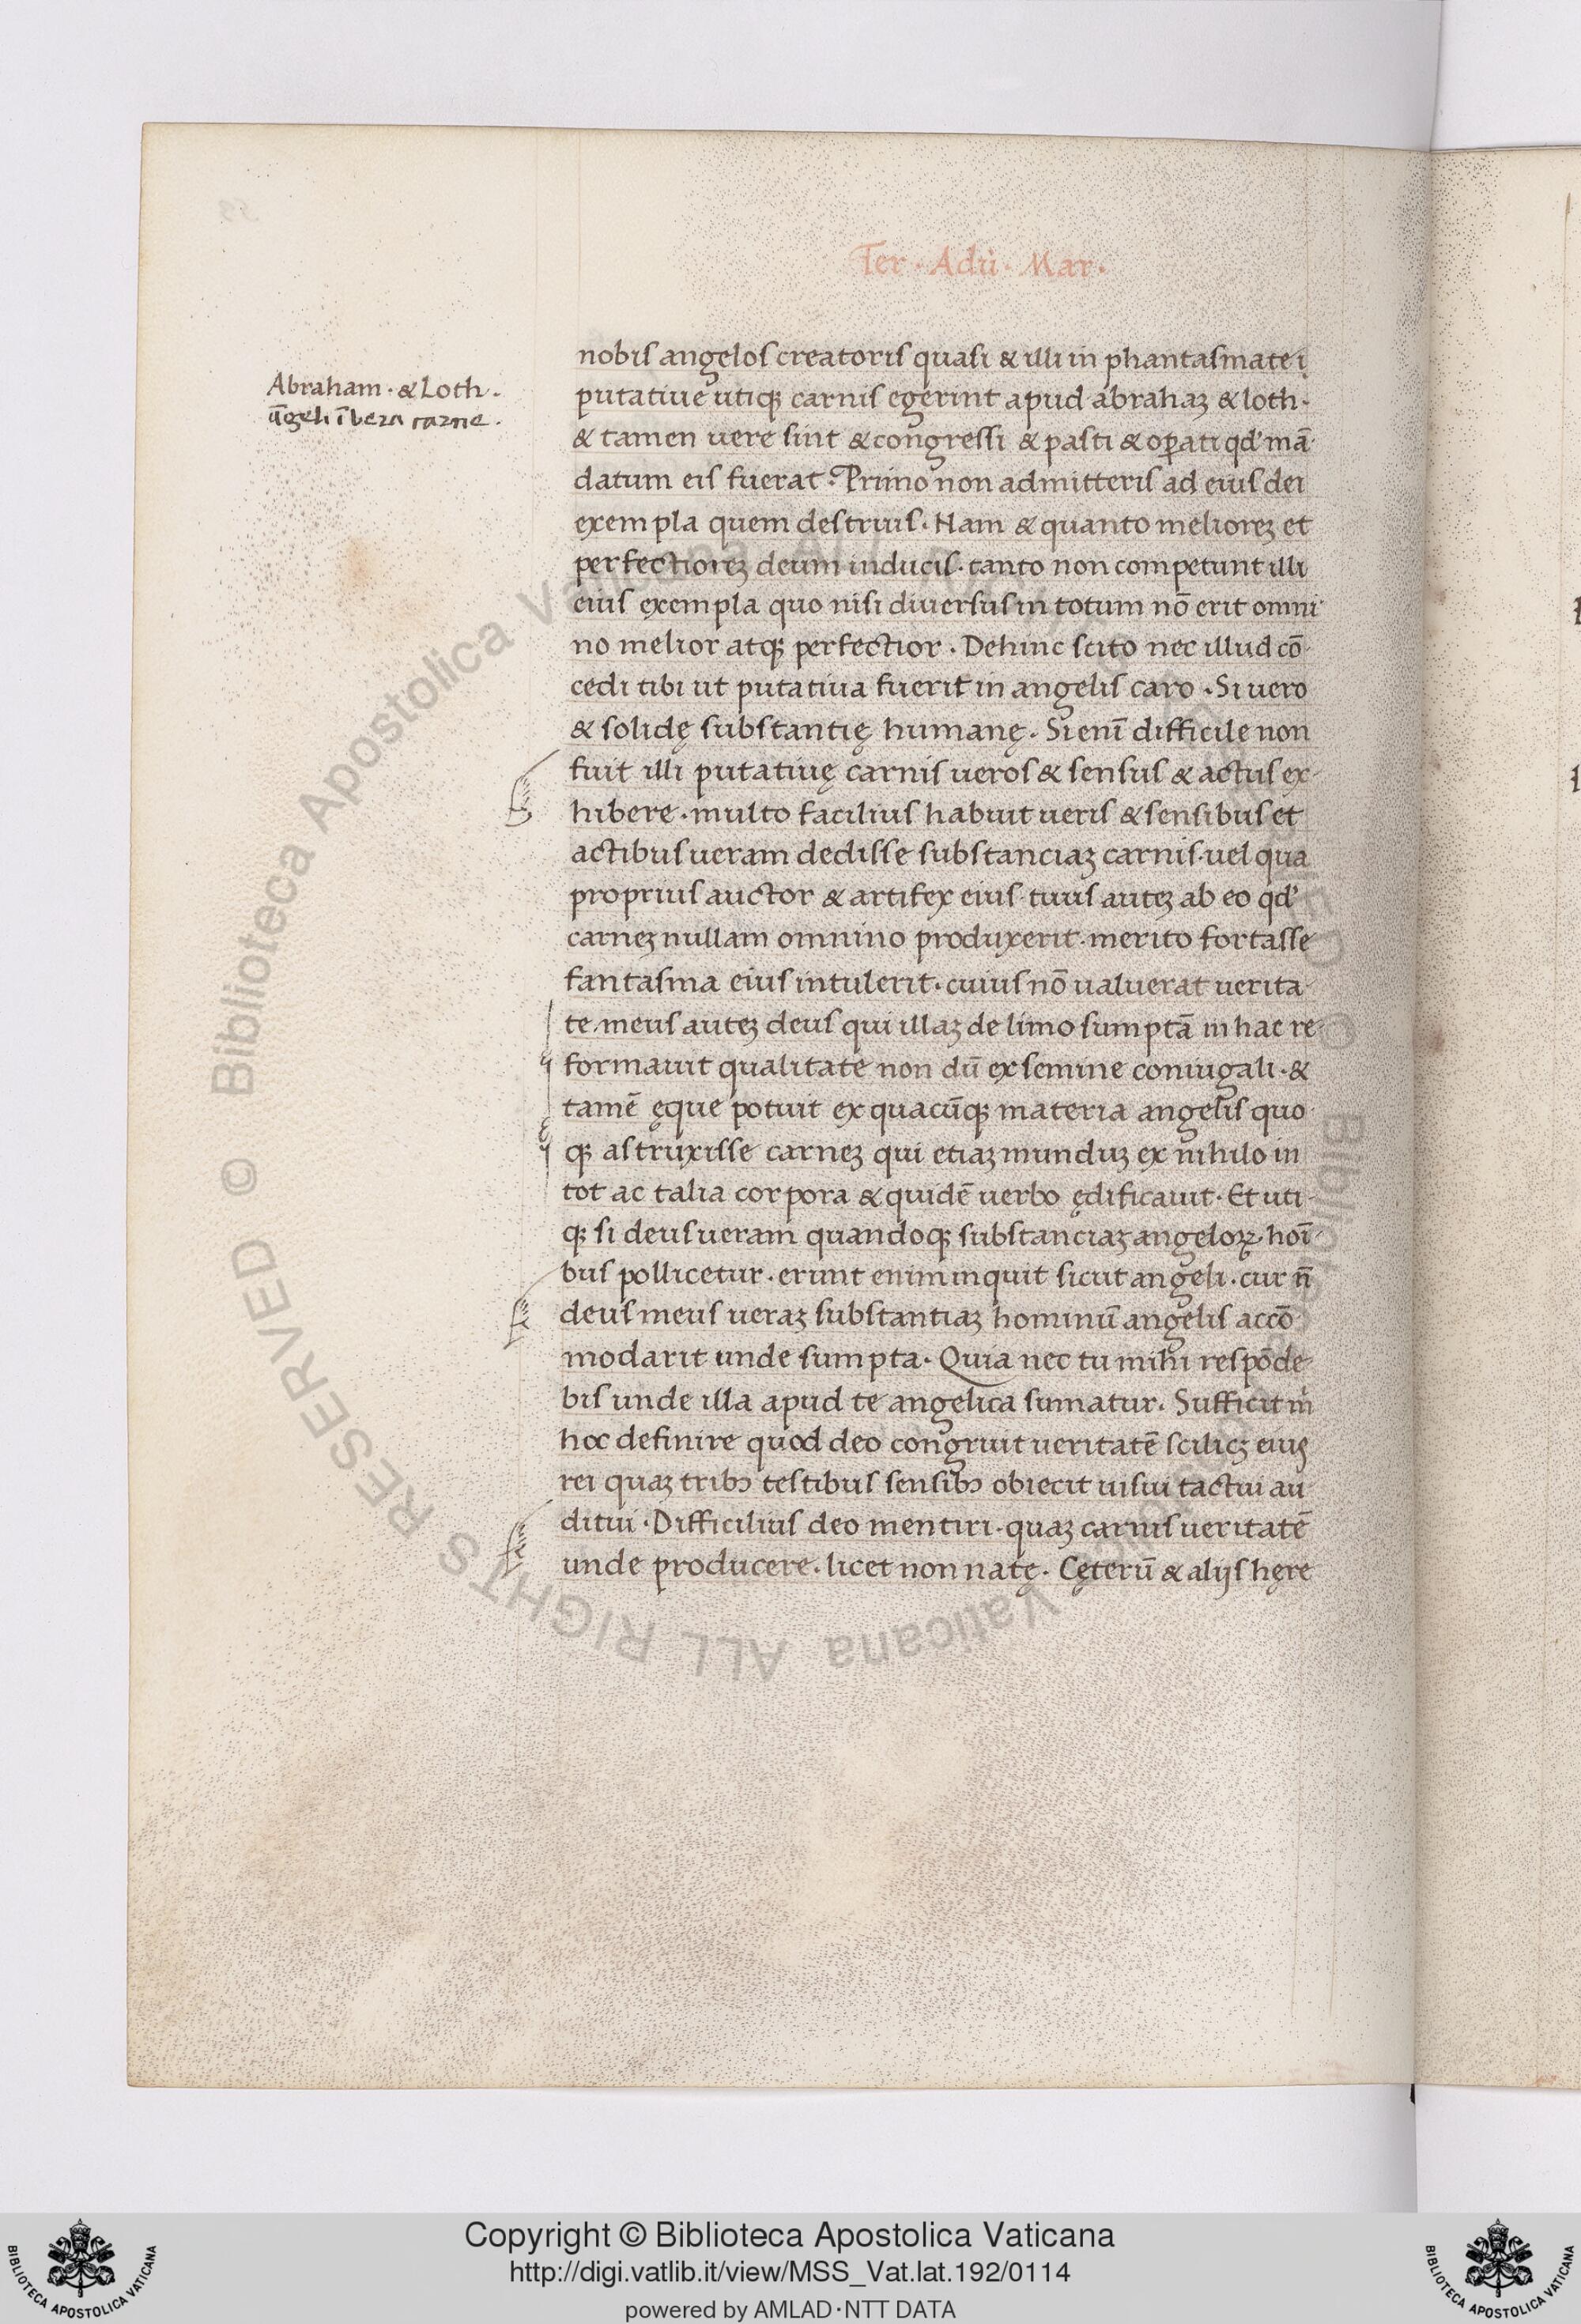 Ter · Adũ · Mar ·
Abraham · & Loth ·
ãgeli ĩ bera carne ·
nobis angelos creatoris quasi & illi in phantasmate i
putatiue utiqꝫ carnis egerint apud abrahaꝫ & loth ·
& tamen uere sint & congressi & pasti & oꝑati qđ mã
datum eis fuerat · Primo non admitteris ad eius dei
exempla quem destruis · Nam & quanto melioreꝫ et
perfectioreꝫ deum inducis · tanto non competunt illi
eius exempla quo nisi diuersus in totum nõ erit omni
no melior atqꝫ perfectior · Dehinc scito nec illud cõ-
cedi tibi ut putatiua fuerit in angelis caro · Si uero
& solidę substantię humanę · Si enĩ difficile non
fuit illi putatiuę carnis ueros & sensus & actus ex-
hibere · multo facilius habuit ueris & sensibus et
actibus ueram dedisse substanciaꝫ carnis · uel qua
proprius auctor & artifex eius · tuus auteꝫ ab eo qđ
carneꝫ nullam omnino produxerit · merito fortasse
fantasma eius intulerit · cuius nõ ualuerat uerita-
te · meus auteꝫ deus qui illaꝫ de limo sumptã in hac re-
formauit qualitate non dũ ex semine coniugali · &
tamẽ ęque potuit ex quacũqꝫ materia angelis quo-
qꝫ astruxisse carneꝫ qui etiaꝫ munduꝫ ex nihilo in
tot ac talia corpora & quidẽ uerbo ędificauit · Et uti-
qꝫ si deus ueram quandoqꝫ substanciaꝫ angeloꝝ hoĩ-
bus pollicetur · erunt enim inquit sicut angeli · cur ñ
deus meus ueraꝫ substantiaꝫ hominũ angelis accõ-
modarit unde sumpta · Quia nec tu mihi respõde-
bis unde illa apud te angelica sumatur · Sufficit m̃
hoc definire quod deo congruit ueritatẽ scilicꝫ eiuꝰ
rei quaꝫ tribꝰ testibus sensibꝰ obiecit uisui tactui au
ditui · Difficilius deo mentiri · quaꝫ carnis ueritatẽ
unde producere · licet non natę · Cęterũ & alijs hęre
Copyright © Biblioteca Apostolica Vaticana
http://digi.vatlib.it/view/MSS_Vat.lat.192/0114
powered by AMLAD·NTT DATA
© Biblioteca Apostolica Vaticana ALL RIGHTS RESERVED
BIBLIOTECA APOSTOLICA VATICANA
BIBLIOTECA APOSTOLICA VATICANA